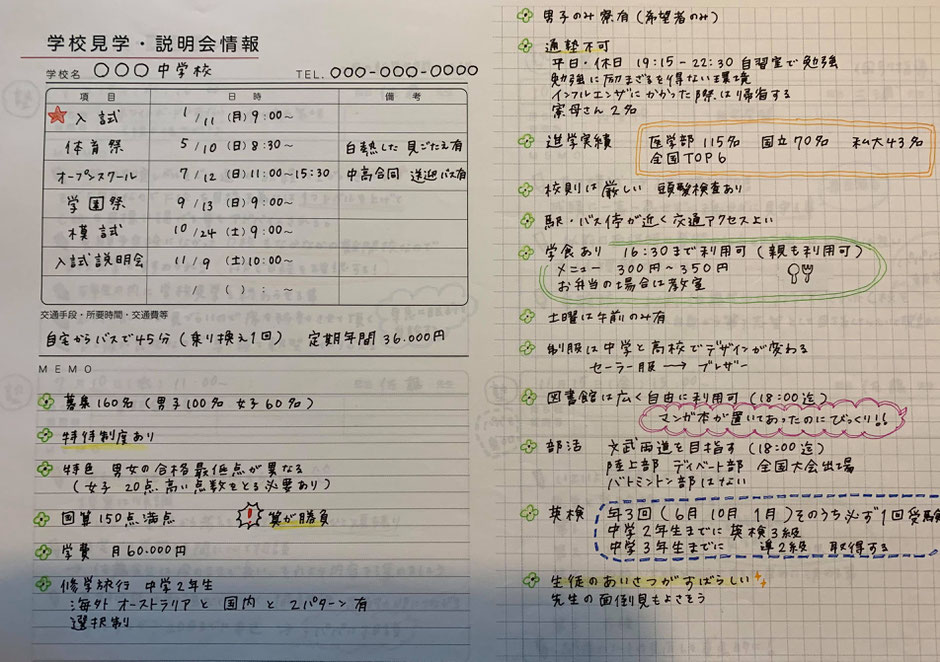 学校見学・説明会情報
学校名 〇〇〇中学校 TEL. 000-000-0000
項目 日時 備考
入試 1/11 (月) 9:00〜
体育祭 5/10 (日) 8:30〜 白熱した 見ごたえ有
オープンスクール 7/12 (日) 11:00〜15:30 中高合同 送迎バス有
学園祭 9/13 (日) 9:00〜
模試 10/24 (土) 9:00〜
入試説明会 11/9 (土) 10:00〜
/ ( ) : 〜
交通手段・所要時間・交通費等
自宅からバスで45分 (乗り換え1回) 定期年間 36.000円
MEMO
募集160名 (男子100名 女子60名)
特待制度あり
特色 男女の合格最低点が異なる
(女子 20点 高い点数をとる必要あり)
国算150点満点 算が勝負
学費 月60.000円
修学旅行 中学2年生
海外 オーストラリアと 国内と 2パターン有
選択制
男子のみ寮有 (希望者のみ)
通塾不可
平日・休日 19:15-22:30 自習室で勉強
勉強に励まざるを得ない環境
インフルエンザにかかった際は帰省する
寮母さん 2名
進学実績 医学部 115名 国立70名 私大43名
全国TOP6
校則は厳しい 頭髪検査あり
駅・バス停が近く交通アクセスよい
学食あり 16:30まで利用可 (親も利用可)
メニュー 300円〜350円
お弁当の場合は教室
土曜は午前のみ有
制服は中学と高校でデザインが変わる
セーラー服 → ブレザー
図書館は広く自由に利用可 (18:00迄)
マンガ本が置いてあったのにびっくり!!
部活 文武両道を目指す (18:00迄)
陸上部 ディベート部 全国大会出場
バトミントン部はない
英検 年3回 (6月 10月 1月) そのうち必ず1回受験
中学2年生までに 英検3級
中学3年生までに 準2級 取得する
生徒のあいさつがすばらしい
先生の面倒見もよさそう